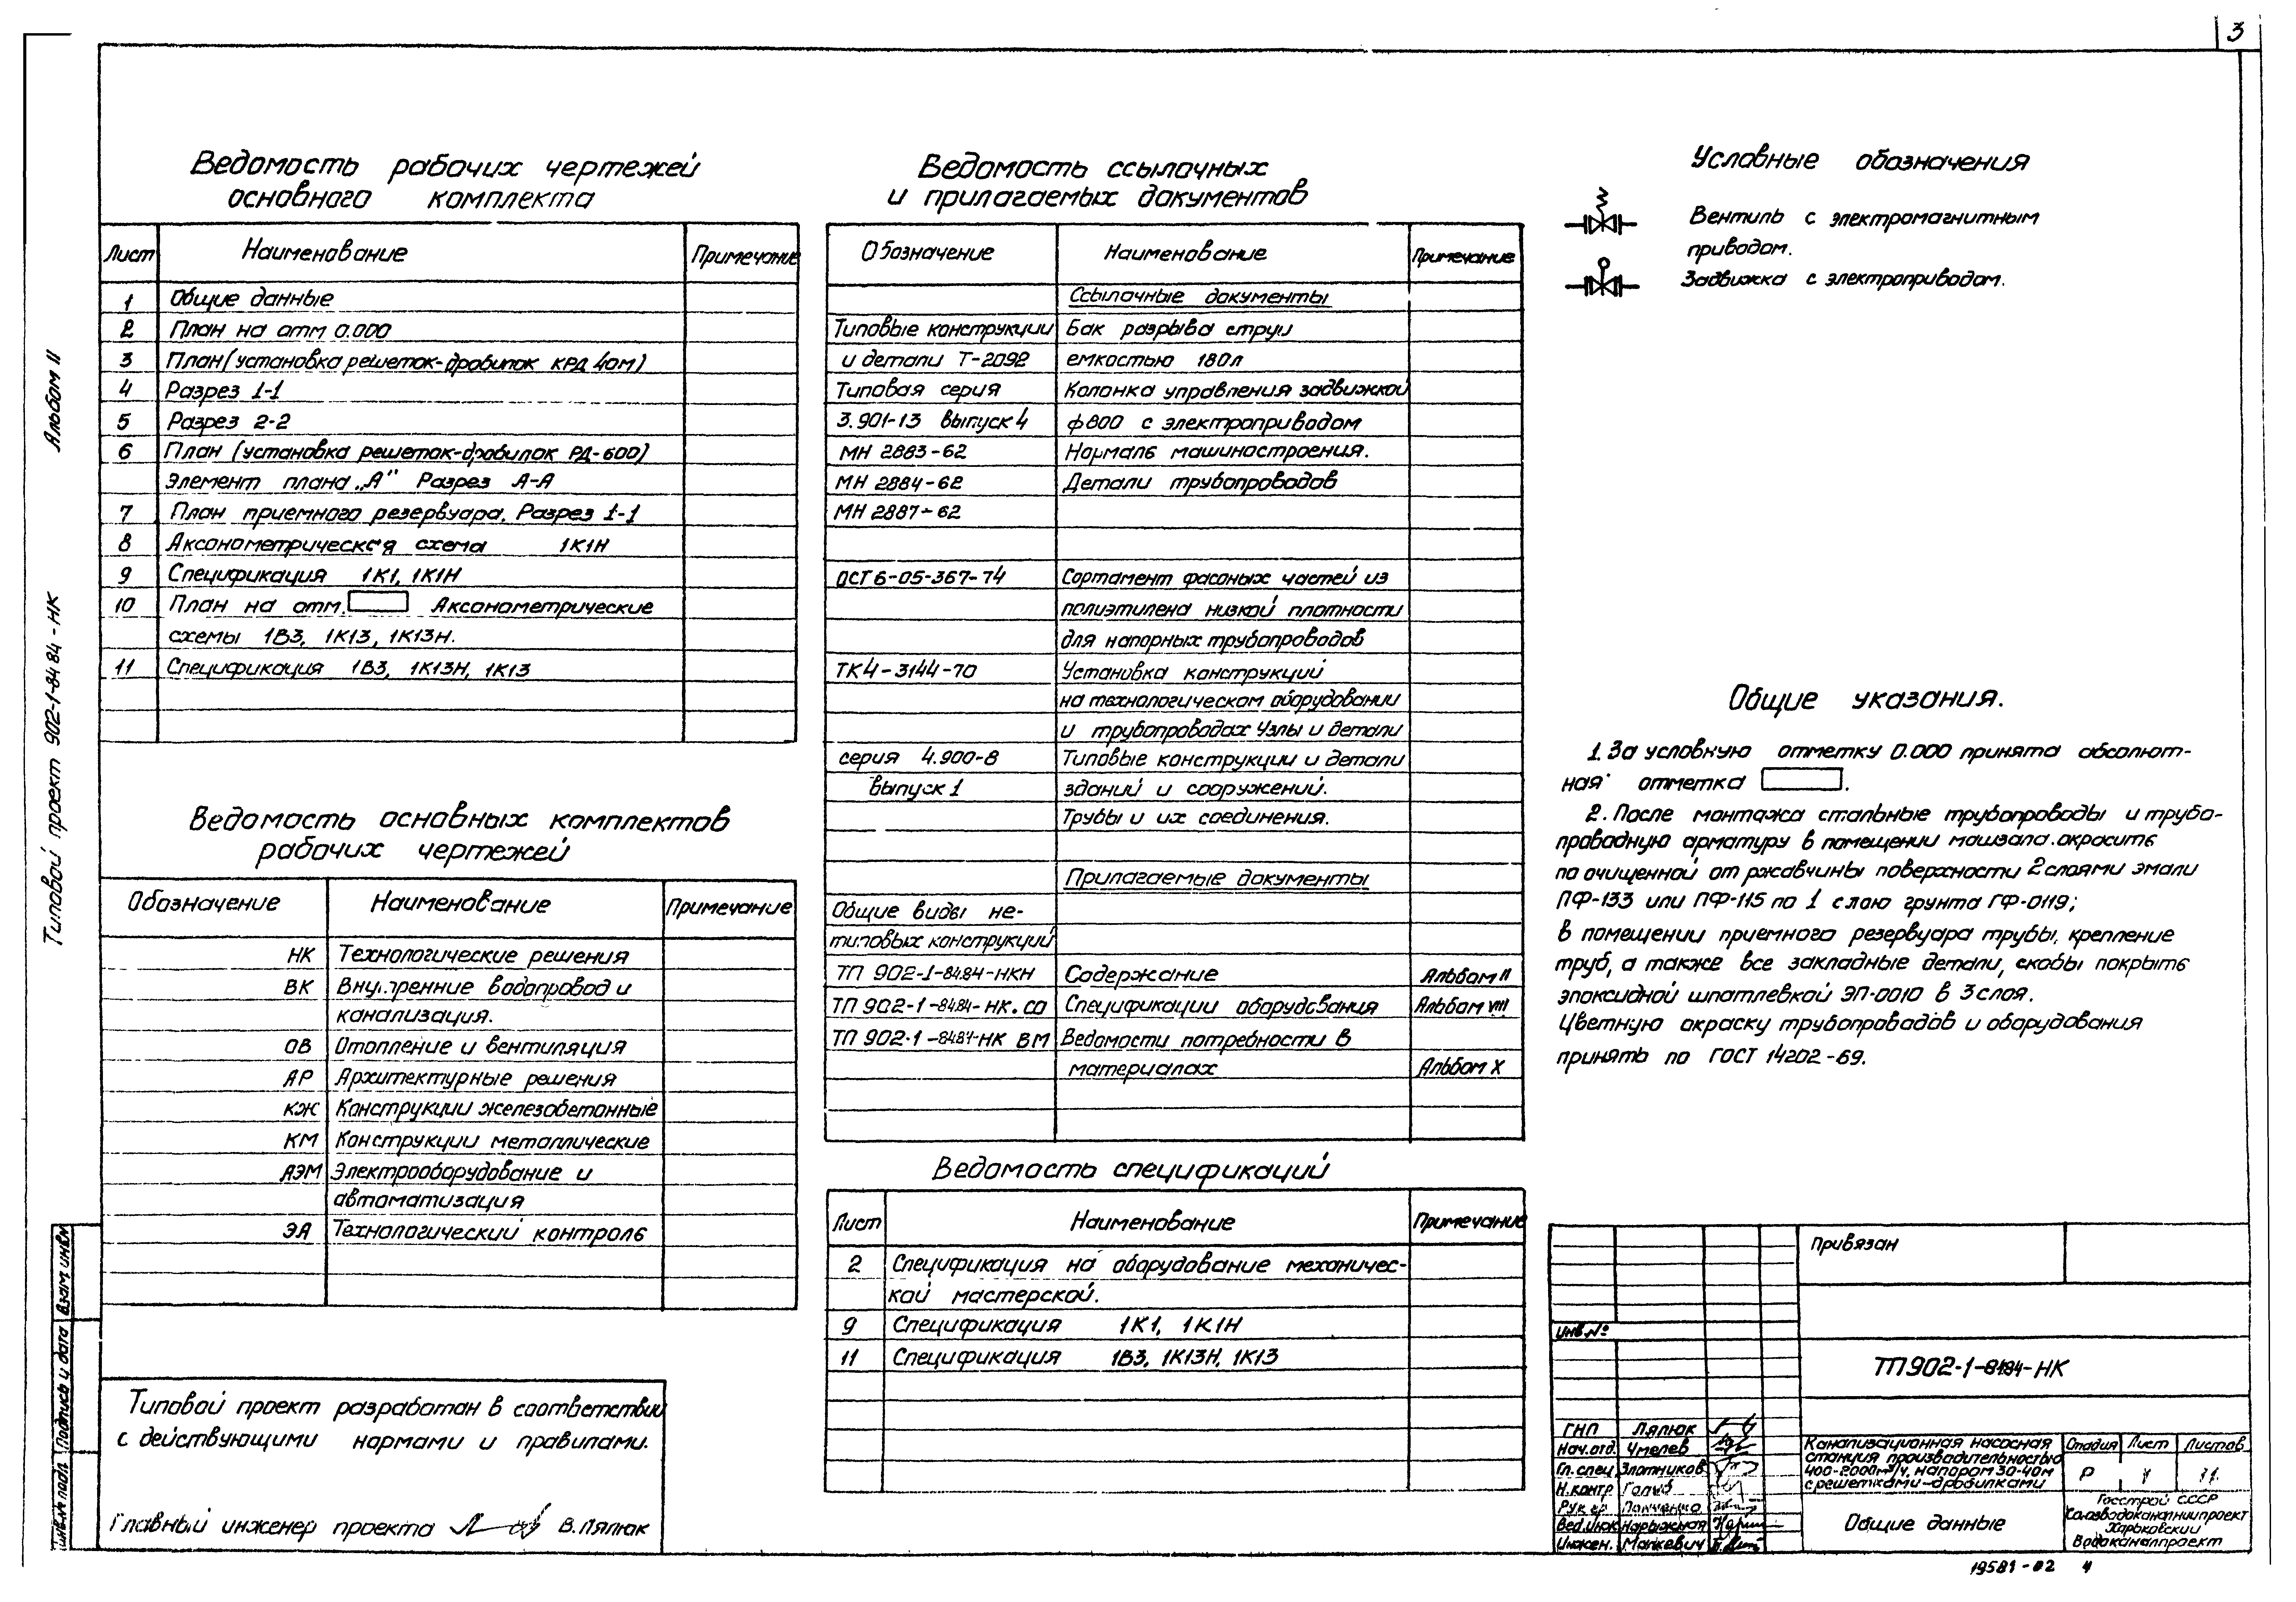 3
Альбом II
Типовой проект 902-1-84 84-НК
Взам инв№
Подпись и дата
Инв.№ подл.
Ведомость рабочих чертежей
основного комплекта
Лист Наименование Примечание
1 Общие данные
2 План на отм 0.000
3 План (установка решеток-дробилок КРД 40м)
4 Разрез 1-1
5 Разрез 2-2
6 План (установка решеток-дробилок РД-600)
Элемент плана „А" Разрез А-А
7 План приемного резервуара. Разрез 1-1
8 Аксонометрическая схема 1К1Н
9 Спецификация 1К1, 1К1Н
10 План на отм. Аксонометрические
схемы 1В3, 1К13, 1К13Н.
11 Спецификация 1В3, 1К13Н, 1К13
Ведомость основных комплектов
рабочих чертежей
Обозначение Наименование Примечание
НК Технологические решения
ВК Внутренние водопровод и
канализация.
ОВ Отопление и вентиляция
АР Архитектурные решения
КЖ Конструкции железобетонные
КМ Конструкции металлические
АЭМ Электрооборудование и
автоматизация
ЭА Технологический контроль
Типовой проект разработан в соответствии
с действующими нормами и правилами.
Главный инженер проекта В. Лялюк
Ведомость ссылочных
и прилагаемых документов
Обозначение Наименование Примечание
Ссылочные документы
Типовые конструкции Бак разрыва струи
и детали Т-2092 емкостью 180л
Типовая серия Колонка управления задвижкой
3.901-13 выпуск 4 ф800 с электроприводом
МН 2883-62 Нормаль машиностроения.
МН 2884-62 Детали трубопроводов
МН 2887-62
ОСТ 6-05-367-74 Сортамент фасоных частей из
полиэтилена низкой плотности
для напорных трубопроводов
ТК4-3144-70 Установка конструкций
на технологическом оборудовании
и трубопроводах Узлы и детали
серия 4.900-8 Типовые конструкции и детали
выпуск 1 зданий и сооружений.
Трубы и их соединения.
Прилагаемые документы
Общие виды не-
типовых конструкций
ТП 902-1-8484-НКН Содержание Альбом II
ТП 902-1-8484-НК.СО Спецификации оборудования Альбом VIII
ТП 902-1-8484-НК ВМ Ведомости потребности в
материалах Альбом X
Ведомость спецификаций
Лист Наименование Примечание
2 Спецификация на оборудование механичес-
кой мастерской.
9 Спецификация 1К1, 1К1Н
11 Спецификация 1В3, 1К13Н, 1К13
Условные обозначения
Вентиль с электромагнитным
приводом.
Задвижка с электроприводом.
Общие указания.
1. За условную отметку 0.000 принята абсолют-
ная отметка .
2. После монтажа стальные трубопроводы и трубо-
проводную арматуру в помещении машзала окрасить
по очищенной от ржавчины поверхности 2 слоями эмали
ПФ-133 или ПФ-115 по 1 слою грунта ГФ-0119;
в помещении приемного резервуара трубы, крепление
труб, а также все закладные детали, скобы покрыть
эпоксидной шпатлевкой ЭП-0010 в 3 слоя.
Цветную окраску трубопроводов и оборудования
принять по ГОСТ 14202-69.
Привязан
Инв.№
ТП902-1-8484-НК
ГНП Лялюк
Нач.отд. Чмелев
Гл.спец Злотников
Н.контр Голуб
Рук.гр Панченко
Вед.инж Нарыжная
Инжен. Маткевич
Канализационная насосная
станция производительностью
400-2000м³/ч, напором 30-40м
с решетками-дробилками
Стадия Лист Листов
Р 1 11
Общие данные
Госстрой СССР
Союзводоканалниипроект
Харьковский
Водоканалпроект
19581-02 4